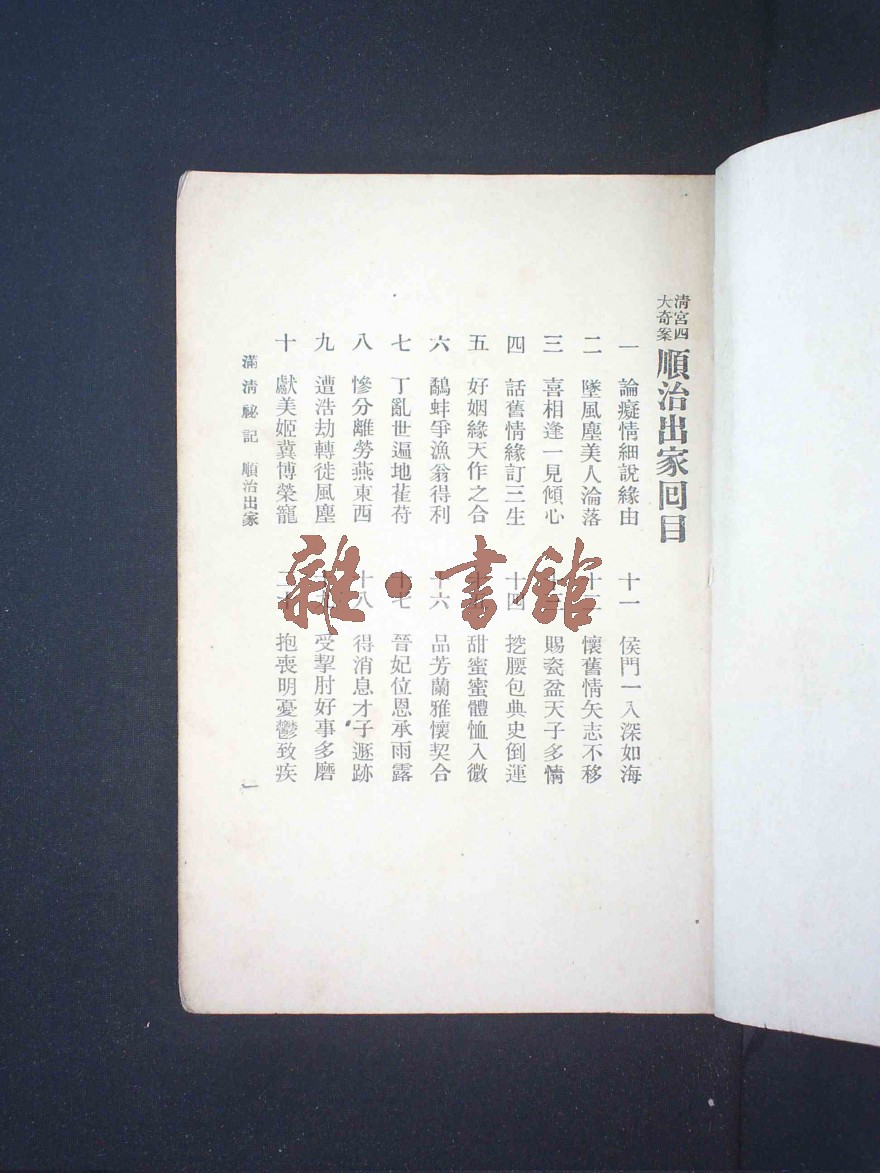 清宮四
大奇案
順治出家囘目
一 論癡情細說緣由
二 墜風塵美人淪落
三 喜相逢一見傾心
四 話舊情緣訂三生
五 好姻緣天作之合
六 鷸蚌爭漁翁得利
七 丁亂世遍地萑苻
八 慘分離勞燕東西
九 遭浩劫轉徙風塵
十 獻美姬冀博榮寵
十一 侯門一入深如海
十二 懷舊情矢志不移
十三 賜瓷盆天子多情
十四 挖腰包典史倒運
十五 甜蜜蜜體恤入微
十六 品芳蘭雅懷契合
十七 晉妃位恩承雨露
十八 得消息才子遯跡
十九 受掣肘好事多磨
二十 抱喪明憂鬱致疾
滿淸祕記 順治出家
一
雜·書館